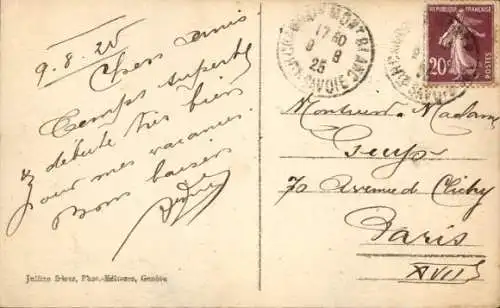 9.8.25
Chers Amis
Temps superbe
débute très bien
pour mes vacances.
Bons baisers
Jullien frères, Phot.-Editeurs, Genève
CHAMONIX MONT BLANC
17 30
9 8
25
HTE SAVOIE
REPUBLIQUE FRANÇAISE
20c
POSTES
Monsieur & Madame
70 Avenue de Clichy
Paris
XVII